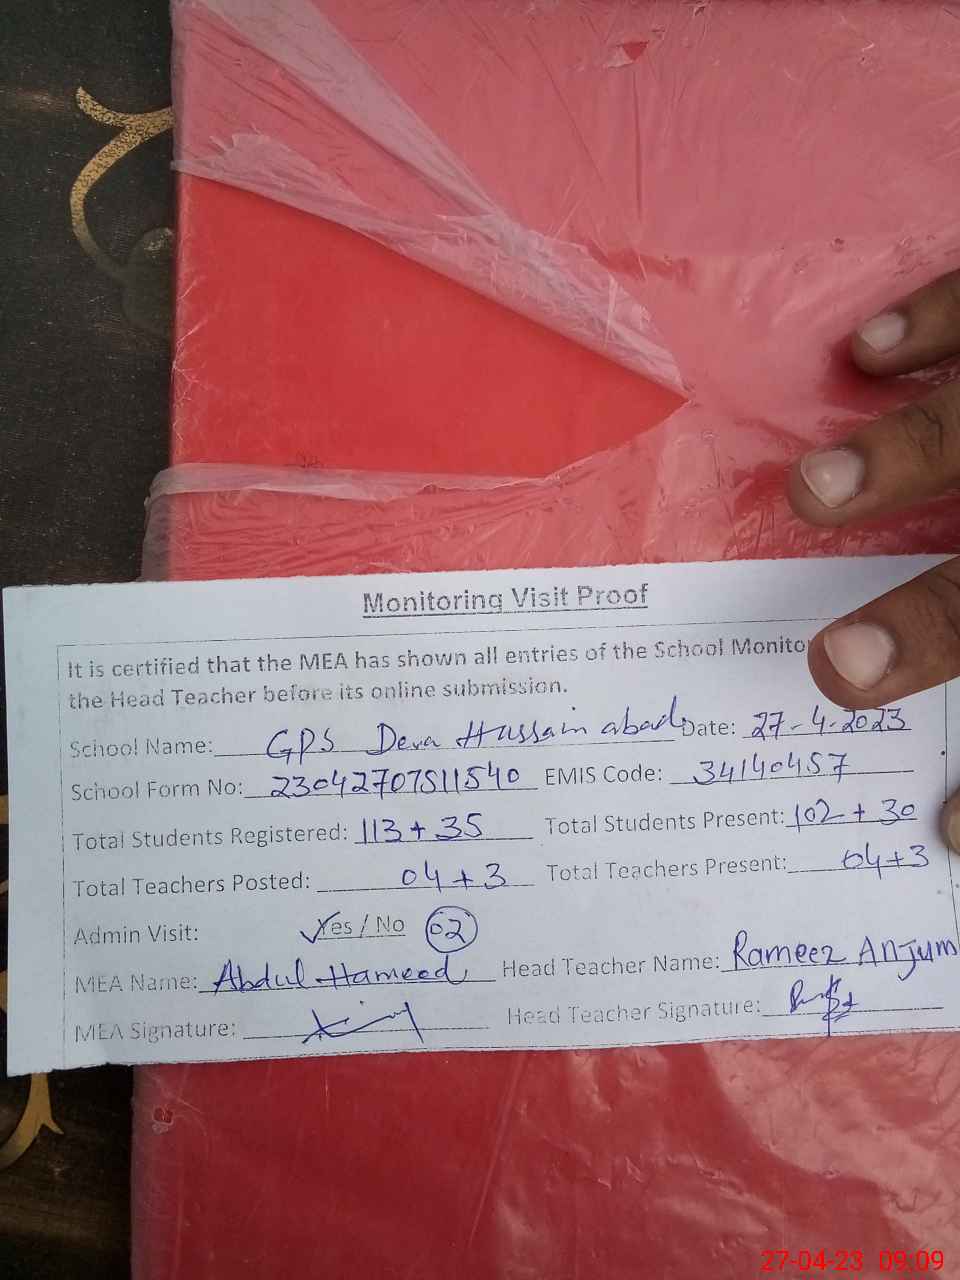 Monitoring Visit Proof
It is certified that the MEA has shown all entries of the School Monito
the Head Teacher before its online submission.
School Name: GPS Dera Hussain abad Date: 27-4-2023
School Form No: 23042707511540 EMIS Code: 34140457
Total Students Registered: 113+35 Total Students Present: 102+30
Total Teachers Posted: 04+3 Total Teachers Present: 04+3
Admin Visit: Yes / No 02
MEA Name: Abdul Hameed Head Teacher Name: Rameez Anjum
MEA Signature: Head Teacher Signature:
27-04-23 09:09